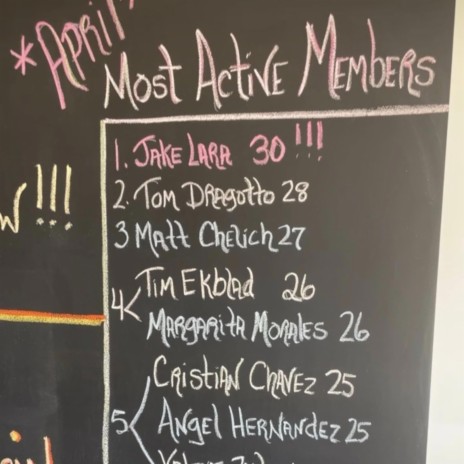 *APRIL*
MOST ACTIVE MEMBERS
!!!
1. JAKE LARA 30 !!!
2. TOM DRAGOTTO 28
3 MATT CHELICH 27
4< TIM EKBLAD 26
MARGARITA MORALES 26
CRISTIAN CHAVEZ 25
5< ANGEL HERNANDEZ 25